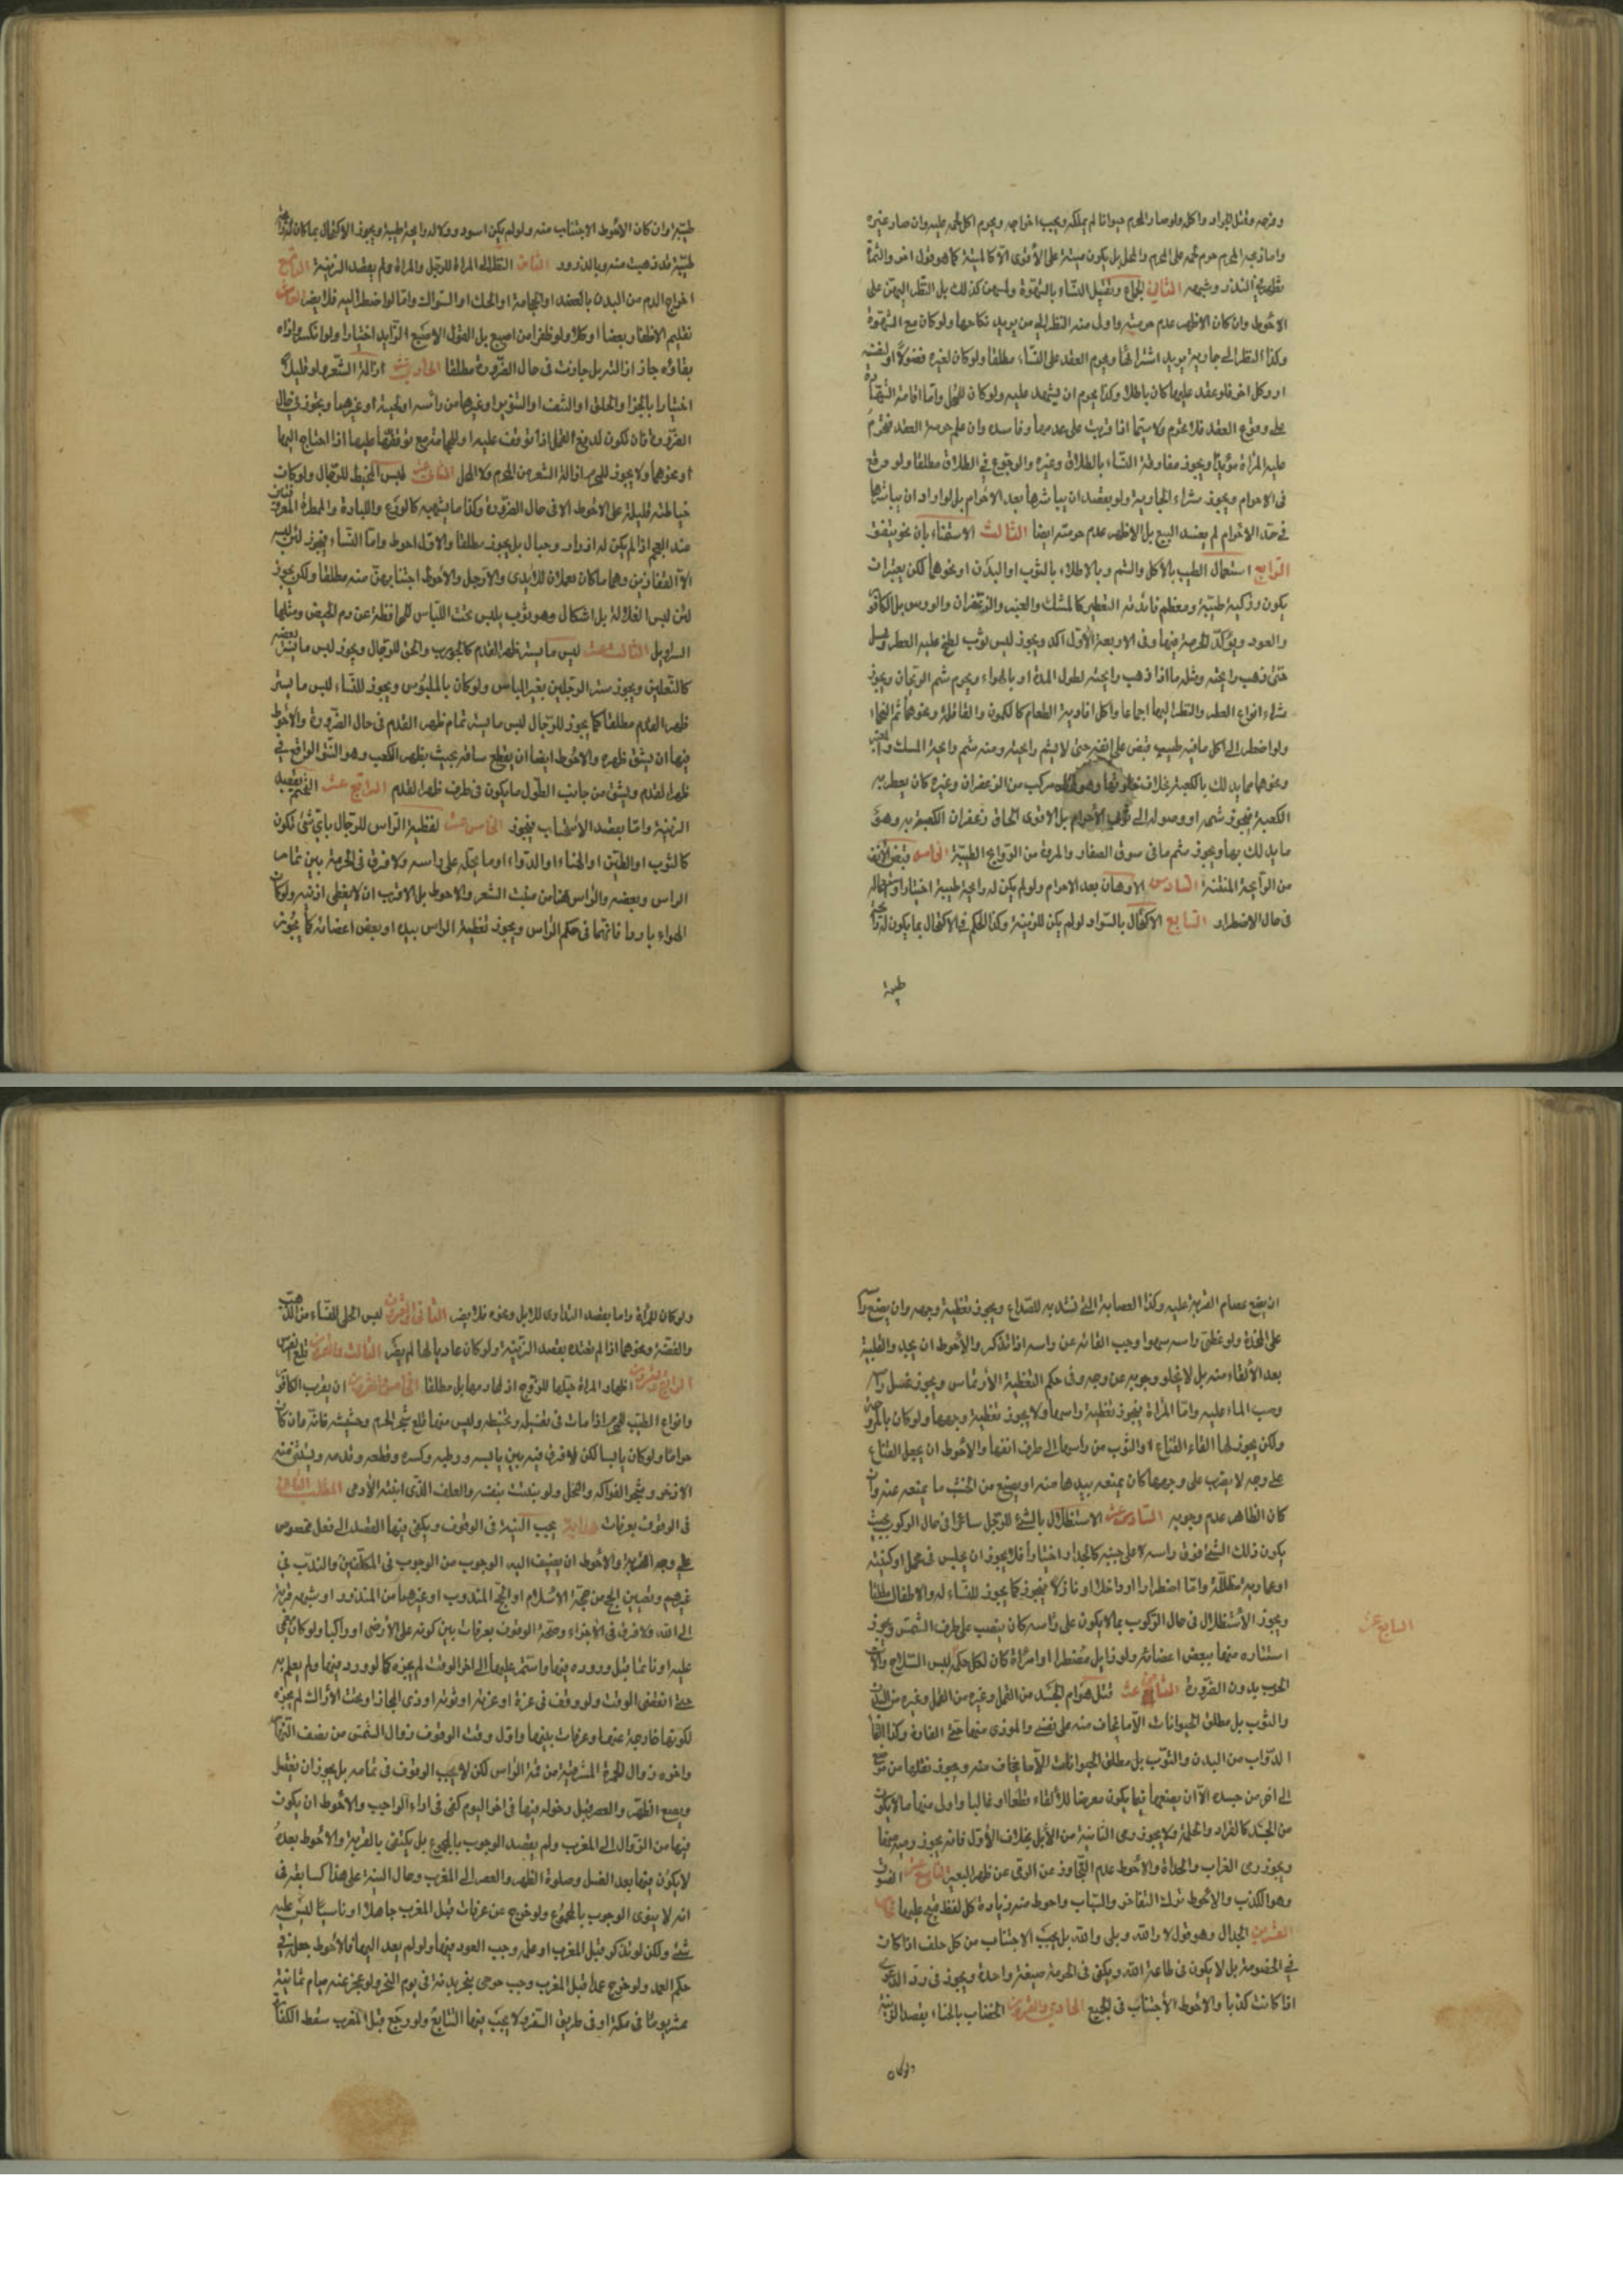 وفرخه وقتل الجراد واكله ولو صاد المحرم حيوانا لم يملكه ويجب اخراجه ويحرم اكل لحمه عليه وان صاد غيره
واما ذبحه المحرم حرم لحمه على المحرم والمحل بل يكون ميتة على الأقوى الا كالميتة كما هو قول اخر والثمرة
تظهر في النذر وشبهه الثاني الجماع وتقبيل النساء بالشهوة ولمسهن كذلك بل النظر اليهن على
الاحوط وان كان الاظهر عدم حرمته واولى منه النظر الى من يريد نكاحها ولو كان مع الشهوة
وكذا النظر الى جارية يريد اشترائها ويحرم العقد على النساء مطلقا ولو كان لغيره فضولا او لنفسه
او وكل اخر فلو عقد عليها كان باطلا وكذا يحرم ان يشهد عليه ولو كان للمحل واما اقامة الشهادة
على وقوع العقد فلا تحرم ولا سيما اذا ترتب على عدمها مفاسد وان علم حرمة العقد فتحرم
عليه المراة مؤبدا ويجوز مفارقة النساء بالطلاق وغيره والرجوع في الطلاق مطلقا ولو وقع
في الاحرام ويجوز شراء الجارية ولو بقصد ان يباشرها بعد الاحرام بل لو اراد ان يباشرها
في حال الاحرام لم يفسد البيع بل الاظهر عدم حرمته ايضا الثالث الاستمناء باى نحو يتفق
الرابع استعمال الطيب بالأكل والشم وبالاطلاء بالثوب او البدن او نحوهما لكن يعتبر ان
يكون وذكية طيبة ومعظم فائدته التطيب كالمسك والعنبر والزعفران والورس بل الكافور
والعود ويؤكد الحرمة فيها وفى الاربعة الأول اكد ويجوز لبس ثوب لطخ عليه العطر وغسل
حتى ذهب رايحته ومثله ما اذا ذهب رايحته لطول المدة او بالهواء ويحرم شم الريحان ويجوز
شراء انواع العطر والنظر اليها اجماعا واكل افاوية الطعام كالكمون والقاقلة ونحوهما ثم انحاء
ولو اضطر الى اكل ما فيه طيب قبض على انفه حتى لا يشم رايحته ومنه شم رايحة المسك والعنبر
ونحوهما مما يدلك بالكعبة بخلاف خلوقها وهو مركب من الزعفران وغيره كان يعطر به
الكعبة فيجوز شمه او وصوله الى ثوب الأحرام بل الاقوى الحاق زعفران الكعبة به وهو
ما يدلك بها ويجوز شم ما في سوق الصفا والمروة من الروايح الطيبة الخامس قبض الانف
من الرايحة المنتنة السادس الادهان بعد الاحرام ولو لم يكن له رايحة طيبة اختيارا واستعماله
في حال الاضطرار السابع الاكتحال بالسواد ولو لم يكن للزينة وكذا الحكم في الاكتحال بما يكون له رايحة
طيبة
طيبة وان كان الأحوط الاجتناب منه ولو لم يكن اسود ولا له رايحة طيبة ويجوز الاكتحال بما كان له رايحة
طيبة قد ذهبت منه وبالذرور الثامن النظر الى المراة للرجل والمراة ولو لم يقصد الزينة التاسع
اخراج الدم من البدن بالفصد او الحجامة او الحك او السواك واما لو اضطر اليه فلا يضر العاشر
تقليم الاظفار بعضا او كلا ولو ظفرا من اصبع بل القول الاصبع الزايد اختيارا ولو انكسر واذاه
بقاؤه جاز ازالته بل جازت في حال الضرورة مطلقا الحاديعشر ازالة الشعر ولو قليلا
اختيارا بالجز او الحلق او النتف او التنوير او غيرها من رأسه او لحيته او غيرهما ويجوز في حال
الضرورة كان تكون لدفع القمل اذا توقف عليه او للحجامة مع توقفها عليها اذا احتاج اليها
او نحوهما ولا يجوز للمحرم ازالة الشعر من المحرم ولا المحل الثانيعشر لبس المخيط للرجال ولو كانت
خياطته قليلة على الاحوط الا في حال الضرورة وكذا ما يشبهه كالدرع واللبادة والممطرة المعروفتين
عند العجم اذا لم يكن له ازرار وحبال بل يجوز مطلقا والاول احوط واما النساء فيجوز لهن لبسه
الا القفازين وهما ما كان معدلان للايدى والأرجل والاحوط اجتنابهن منه مطلقا ولكن يجوز
لهن لبس الغلالة بل اشكال وهو ثوب يلبس تحت اللباس للمحافظة عن دم الحيض ومثلها
السراويل الثالثعشر لبس ما يستر ظهر القدم كالجورب والخف للرجال ويجوز لبس ما يستر بعضه
كالنعلين ويجوز ستر الرجلين بغير اللباس ولو كان بالملبوس ويجوز للنساء لبس ما يستر
ظهر القدم مطلقا كما يجوز للرجال لبس ما يستر تمام ظهر القدم في حال الضرورة والأحوط
فيها ان يشق ظهره والاحوط ايضا ان يقطع ساقه بحيث يظهر الكعب وهو النتو الواقع في
ظهر القدم ويشق من جانب الطول ما يكون في طرف ظهر القدم الرابع عشر التختم بقصد
الزينة واما بقصد الاستحباب فيجوز الخامس عشر تغطية الراس للرجال باي شئ تكون
كالثوب او الطين او الحناء او الدواء او ما يحمله على راسه ولا فرق في الحرمة بين تمام
الراس وبعضه والراس هنا من منبت الشعر والاحوط بل الاقرب ان لا يغطى اذنيه ولو كان
الهواء باردا فانهما في حكم الراس ويجوز تغطية الراس بيده او ببعض اعضائه كما يجوز
ان يضع عصام القربة عليه وكذا العصابة التي تشد به للصداع ويجوز تغطية وجهه وان يضع رأسه
على المخدة ولو غطى راسه سهوا وجب القائه عن راسه اذا تذكر والأحوط ان يجدد التلبية
بعد الألقاء منه بل لا يخلو وجوبه عن وجه وفى حكم التغطية الأرتماس ويجوز غسل رأسه
وصب الماء عليه واما المراة فيجوز تغطية راسها ولا يجوز تغطية وجهها ولو كان بالمروحة
ولكن يجوز لها القاء القناع او الثوب من راسها الى طرف انفها والاحوط ان يجعل القناع
على وجه لا يضرب على وجهها كان يمنعه بيدها منه او يضع من الخشب ما يمنعه عنه وان
كان الظاهر عدم وجوبه السادسعشر الاستظلال بالشئ للرجل سائرا في حال الركوب بحيث
يكون ذلك الشئ فوق راسه لا على جنبه كالجدار اختيارا فلا يجوز ان يجلس في محمل او كنيسة
او عمارية مظللة واما اضطرارا او داخلا او نازلا فيجوز كما يجوز للنساء له والاطفال مطلقا
ويجوز الأستظلال في حال الركوب بما لا يكون على رأسه كان ينصب على طرف الشمس ويجوز
السابع عشر
استتاره منها ببعض اعضائه ولو زايل مضطرا او امرأة كان لكل حكمه لبس السلاح والات
الحرب بدون الضرورة الثامن عشر قتل هوام الجسد من القمل وغيره من القمل وغيره من البدن
والثوب بل مطلق الحيوانات الا ما يخاف منه على نفسه والموذى منها حتى الفارة وكذا القاء
الدواب من البدن والثوب بل مطلق الحيوانات الا ما يخاف منه ويجوز نقلها من موضع
الى اخر من جسده الا ان يضعها فيما يكون معرضا للألقاء قطعا او غالبا واولى منها ما لا يكون
من الجسد كالقراد والحلمة ولا يجوز رمى الثانية من الأبل بخلاف الأول فانه يجوز رميه منها
ويجوز رمى الغراب والحداة والاحوط عدم التجاوز عن الرمى عن ظهر البعير التاسع عشر الفسوق
وهو الكذب والاحوط ترك التفاخر والسباب واحوط منه زيادة كل لفظ قبيح عليها
العشرون الجدال وهو قول لا والله وبلى والله بل يجب الاجتناب من كل حلف اذا كانت
في الخصومة بل لا يكون في طاعة الله ويكفى في الحرمة صيغة واحدة ويجوز في رد الدعوى
اذا كانت كذبا والاحوط الأجتناب في الجميع الحادي والعشرون الخضاب بالحناء بقصد الزينة
ولو كان
ولو كان للمراة واما بقصد التداوى للابل ونحوه فلا يضر الثاني والعشرون لبس الحلى للنساء من الذهب
والفضة ونحوهما اذا لم تعتده بقصد الزينة ولو كان عاديا لها لم يضر الثالث والعشرون قلع الضرس
الرابع وعشرون اظهار المراة حليها للزوج او لمحارمها بل مطلقا الخامس وعشرون ان يقرب الكافور
وانواع الطيب للمحرم اذا مات في تغسيله وتحنيطه وليس منها قلع شجر الحرم وحشيشه فانه وان كان
حراما ولو كان يابسا لكن لا فرق فيه بين يابسه ورطبه وكسره وقطعه وقدمه ويستثنى منه
الاذخر وشجر الفواكه والنخل ولو ينبت بنفسه والعلف الذي انبته الأدمى المطلب الثاني
في الوقوف بعرفات هداية يجب النية في الوقوف ويكفى فيها القصد الى فعل مخصوص
على وجه القربة والأحوط ان يضيف اليه الوجوب من الوجوب في المكلفين والندب في
غيرهم وتعيين الحج من حجة الاسلام او الحج المندوب او غيرهما من المنذور او شبهه قربة
الى الله ولا فرق في الأجزاء وصحة الوقوف بعرفات بين كونه على الأرض او راكبا ولو كان مغمى
عليه او نائما قبل وروده فيها واستمر عليها الى اخر الوقت لم يجزه كما لو ورد فيها ولم يعلم به
حتى انقضى الوقت ولو وقف في عرنة او عرينه او ثويه او ذى المجاز او تحت الأراك لم يجزه
لكونها خارجة عنها وعرفات يليها واول وقت الوقوف زوال الشمس من نصف النهار
واخره زوال الحمرة المشرقية من قمة الراس لكن لا يجب الوقوف في تمامه بل يجوز ان يغتسل
ويجمع الظهر والعصر قبل دخوله فيها في اخر اليوم كفى في اداء الواجب والأحوط ان يكون
فيها من الزوال الى المغرب ولم يقصد الوجوب بالمجموع بل يكتفى بالقربة والاحوط بعده
لا يكون فيها بعد الغسل وصلوة الظهر والعصر الى المغرب وحال النية على هذا كسابقه في
انه لا ينوى الوجوب بالمجموع ولو خرج عن عرفات قبل المغرب جاهلا او ناسيا ليس عليه
شئ ولكن لو تذكر قبل المغرب او علم وجب العود فيها ولو لم يعد اليها فالأحوط جعله في
حكم العمد ولو خرج عمدا قبل المغرب وجب جزور ينحره بمنى في يوم النحر ولو عجز عنه صيام ثمانية
عشر يوما في مكة او في طريق السفر ولا يجب فيها التتابع ولو رجع قبل المغرب سقط الكفارة